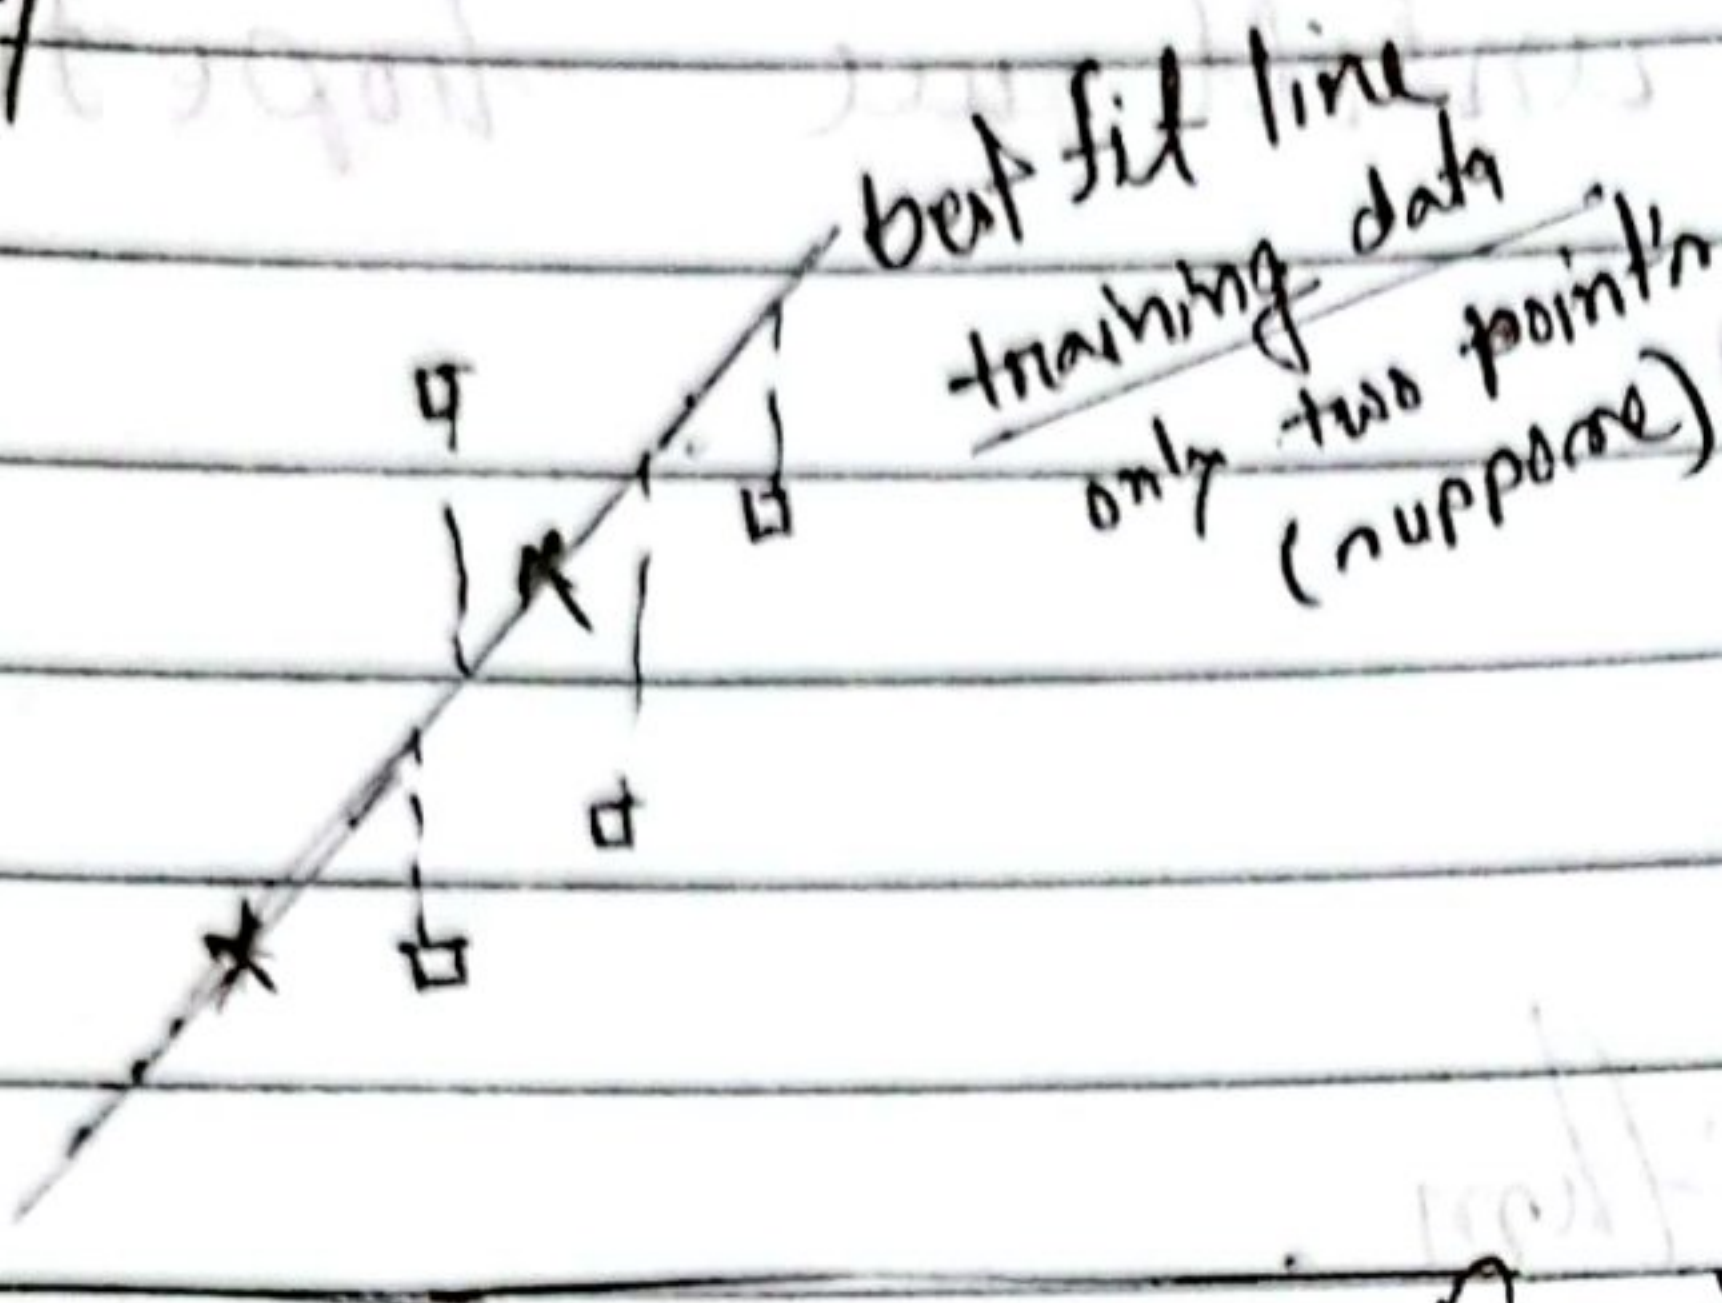 best fit line
training data
only two point's
(suppose)